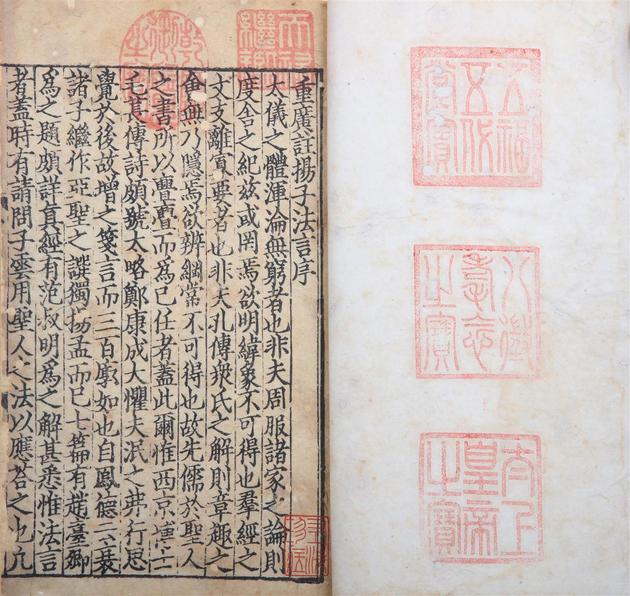 五福五代堂寶
八徵耄念之寶
太上皇帝之寶
天祿繼鑑
乾隆御覽之寶
重廣註揚子法言序
大儀之體渾淪無窮者也非夫周服諸家之論則
度舍之紀茲或罔焉欲明緯象不可得也羣經之
文支離寡要者也非夫孔傳衆氏之解則章趣之
會無乃隱焉欲辨綱常不可得也故先儒於聖人
之書所以亹亹而為己任者蓋此爾惟西京博士
毛萇傳詩頗號太略鄭康成大懼夫泯之弗行思
覺於後故增之箋言而三百廓如也自鳳德云衰
諸子繼作亞聖之譔獨揚孟而已七篇有趙臺卿
為之題頗詳真經有范叔明為之解甚悉惟法言
者蓋時有請問子雲用聖人之法以應荅之也亢